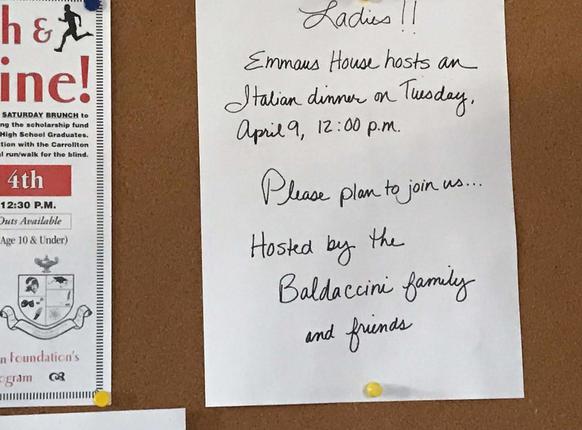 h &
ine!
SATURDAY BRUNCH to
ng the scholarship fund
High School Graduates.
tion with the Carrollton
l run/walk for the blind.
4th
12:30 P.M.
Outs Available
Age 10 & Under)
n Foundation's
ogram
Ladies!!
Emmaus House hosts an
Italian dinner on Tuesday,
April 9, 12:00 p.m.
Please plan to join us...
Hosted by the
Baldaccini family
and friends